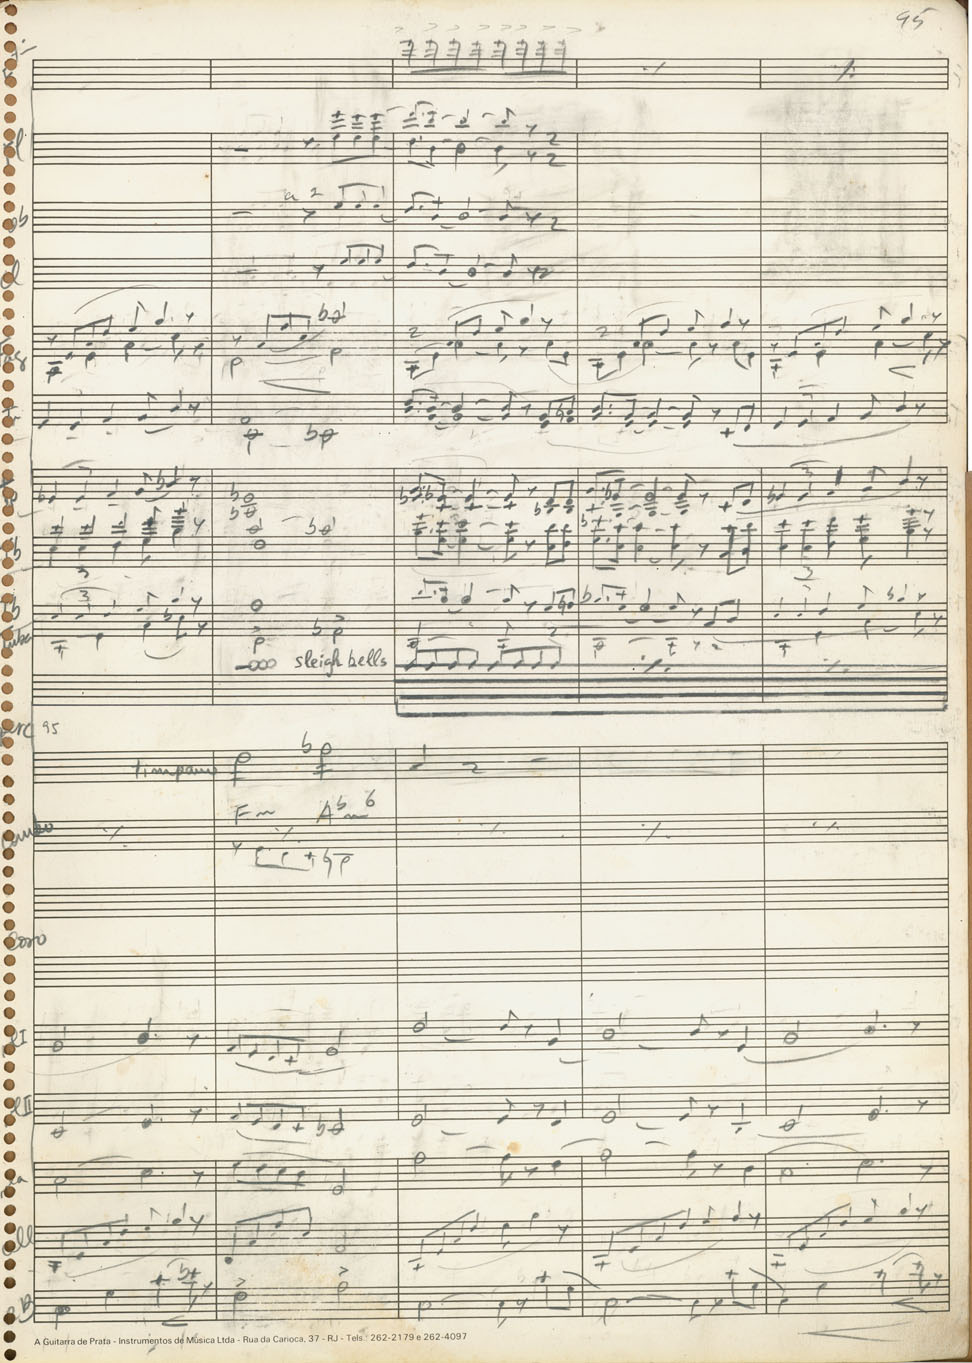 95
a 2
3
3
3
3
sleigh bells
perc 95
timpani
Fm Abm6
combo
coro
A Guitarra de Prata - Instrumentos de Música Ltda - Rua da Carioca, 37 - RJ - Tels.: 262-2179 e 262-4097